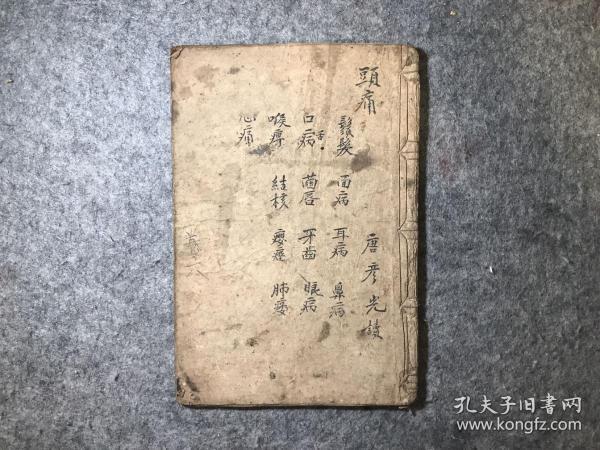 頭痛
唐彦光
鬚髮 面病 耳病 鼻病
口舌病 茵唇 牙齒 眼病
喉痺 結核 癭瘂 肺痿
心痛
孔夫子旧书网
www.kongfz.com